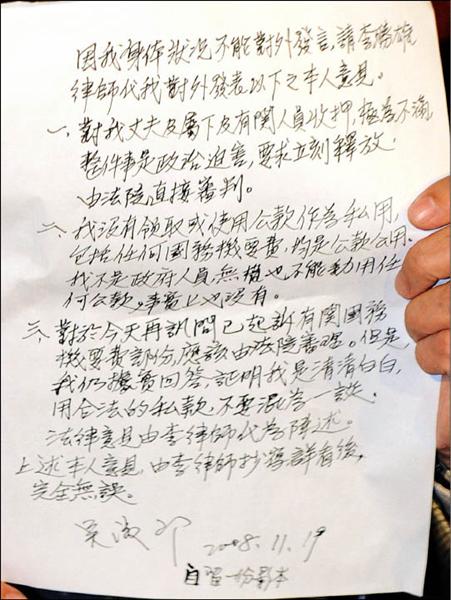 因我身体狀況不能對外發言,請李勝雄
律師代我對外發表以下之本人意見。
一、對我丈夫及屬下及有関人員收押,極為不滿,
整件事是政治迫害,要求立刻釋放,
由法院直接審判。
二、我沒有領取或使用公款作為私用,
包括任何國務機要費,均是公款公用。
我不是政府人員無權也不能動用任
何公款,事實上也沒有。
三、對於今天再訊問已起訴有関國務
機要費部份,應該由法院審理。但是,
我仍據實回答,証明我是清清白白,
用合法的私款,不要混為一談,
法律意見由李律師代為陳述。
上述本人意見,由李律師抄寫詳看後,
完全無誤。
吳淑珍 2008.11.19
自留一份影本